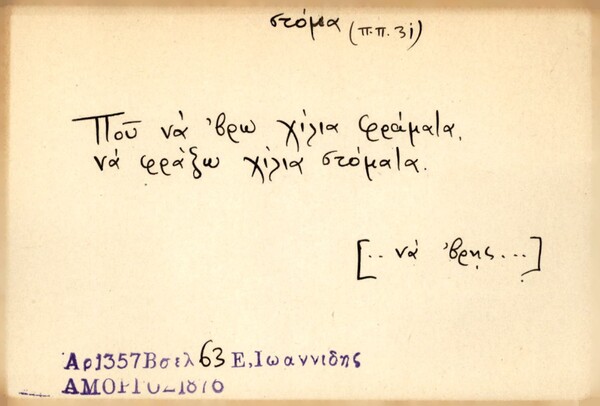 στόμα (π.π. 31)
Ποῦ νά 'βρω χίλια φράματα,
νά φράξω χίλια στόματα.
[.. νά 'βρῃς ...]
Αρ1357Βσελ 63 Ε,Ιωαννιδης
ΑΜΟΡΓΟΣ1876